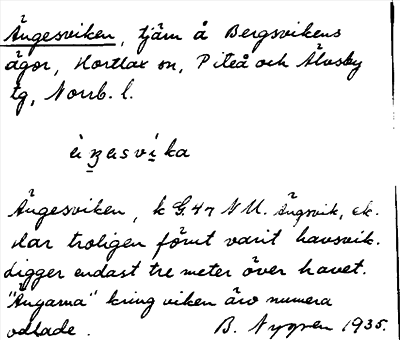 Ängesviken, tjärn å Bergsvikens
ägor, Hortlax sn, Piteå och Älvsby
tg, Norrb. l.
Ängesviken, k G.47 N U. Ängsvik, ek.
Har troligen förut varit havsvik.
Ligger endast tre meter över havet.
"Ängarna" kring viken äro numera
odlade. B. Nygren 1935.